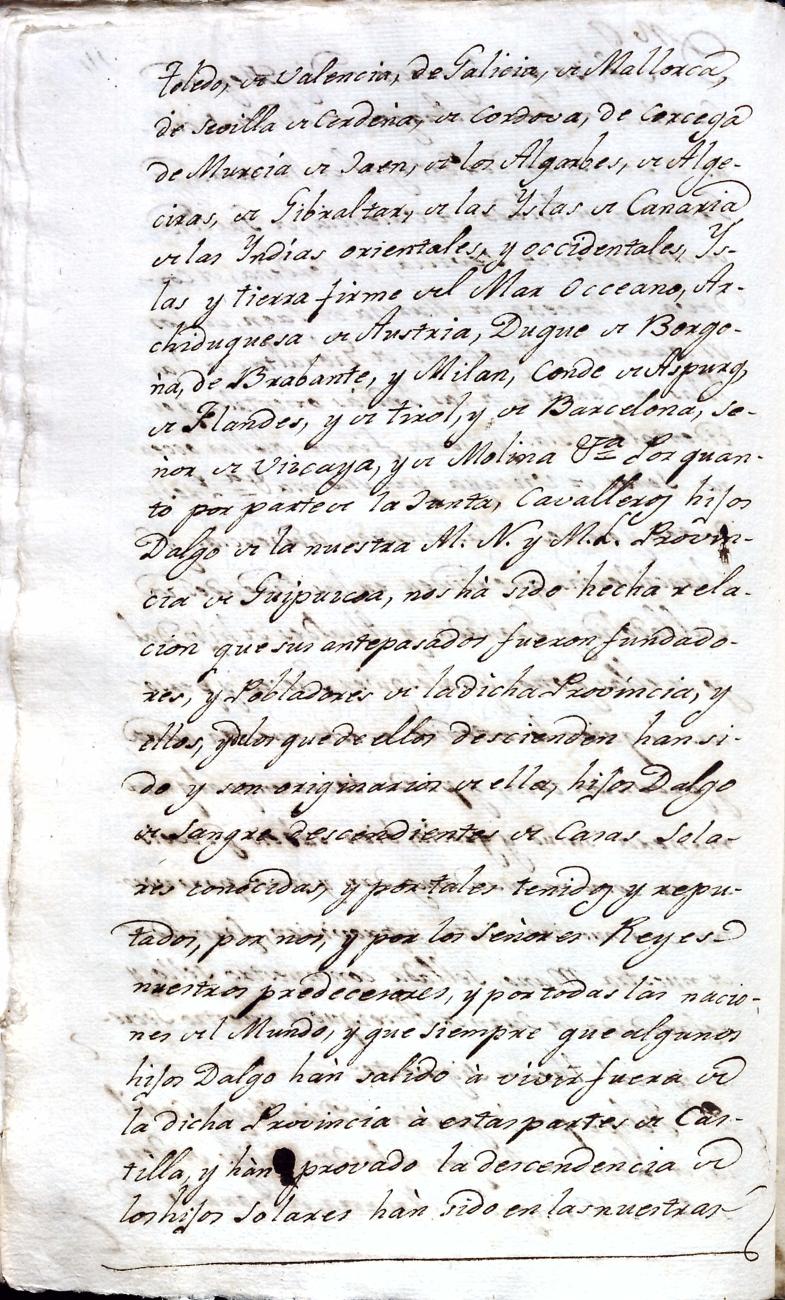 Toledo, de Valencia, de Galicia, de Mallorca,
de sevilla de Cerdeña, de Cordova, de Corcega
de Murcia de Jaen, de los Algarbes, de Alge-
ciras, de Gibraltar, de las Yslas de Canaria
de las Yndias orientales, y occidentales, Ys-
las y tierra firme del Mar Occeano, Ar-
chiduquesa de Austria, Duque de Borgo-
ña, de Brabante, y Milan, Conde de Aspurg,
de Flandes, y de tirol, y de Barcelona, se-
ñor de Vizcaya, y de Molina &ra Por quan-
to por parte de la Junta, Cavalleros hijos
Dalgo de la nuestra M. N. y M. L. Provin-
cia de Guipuzcoa, nos hà sido hecha rela-
cion que sus antepasados fueron fundado-
res, y Pobladores de la dicha Provincia, y
ellos, y los que de ellos descienden han si-
do y son originarios de ella, hijos Dalgo
de Sangre descendientes de Casas sola-
res conocidas, y por tales tenidos, y repu-
tados, por nos, y por los Señores Reyes
nuestros predecesores, y por todas las nacio-
nes del Mundo, y que siempre que algunos
hijos Dalgo hàn salido à vivir fuera de
la dicha Provincia à estas partes de Cas-
tilla, y hàn provado la descendencia de
los hijos Solares hàn sido en las nuestras